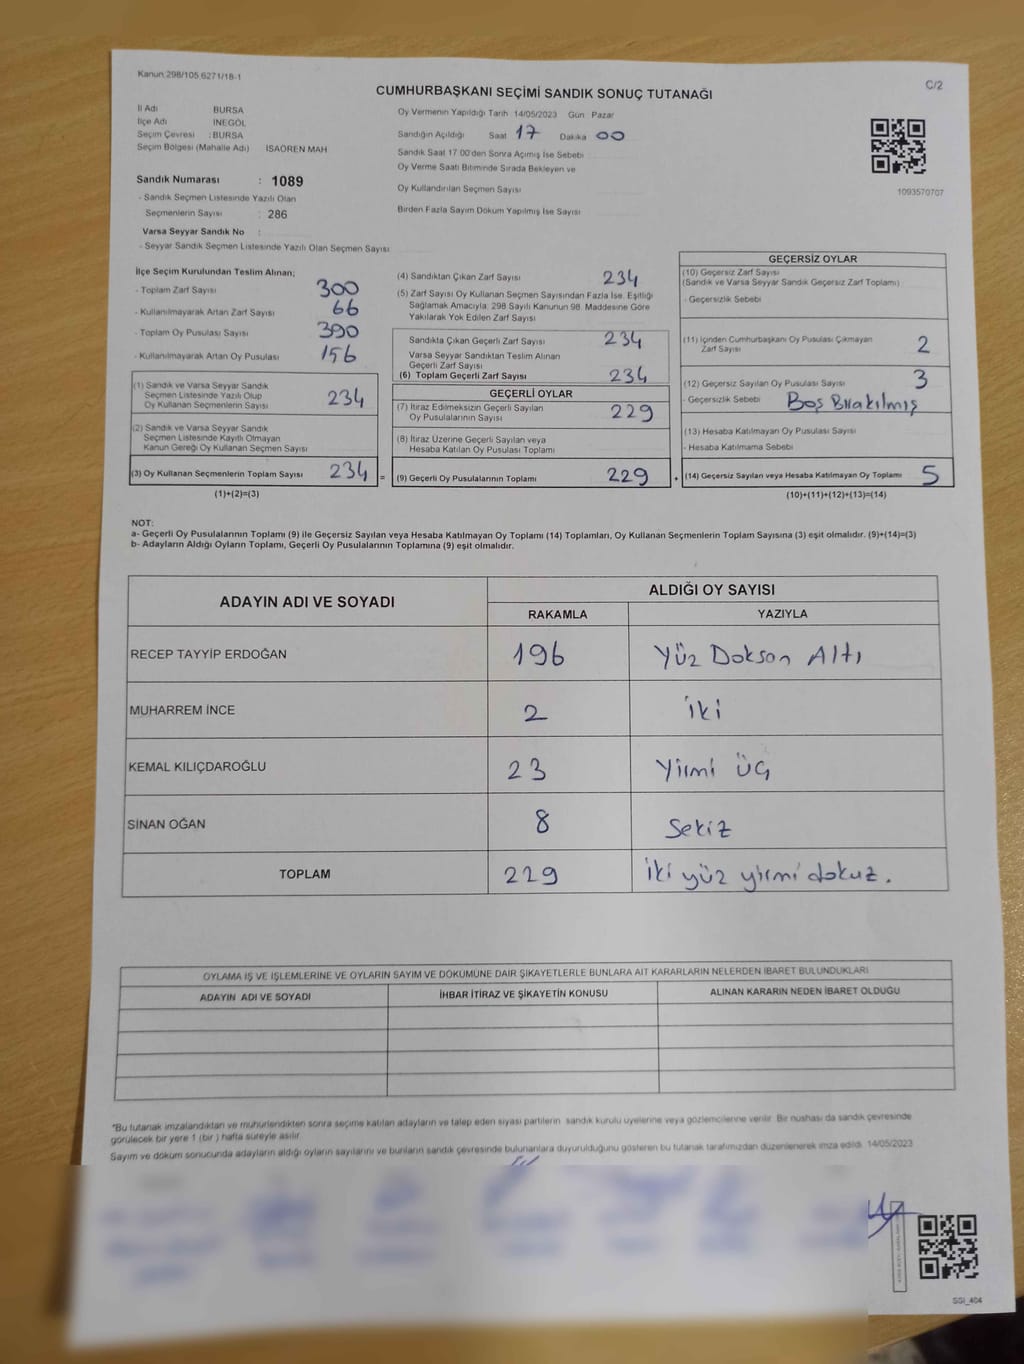 Kanun 298/105,6271/18-1
C/2
CUMHURBAŞKANI SEÇİMİ SANDIK SONUÇ TUTANAĞI
İl Adı BURSA
İlçe Adı İNEGÖL
Seçim Çevresi : BURSA
Seçim Bölgesi (Mahalle Adı) İSAÖREN MAH
Sandık Numarası : 1089
- Sandık Seçmen Listesinde Yazılı Olan
Seçmenlerin Sayısı : 286
Varsa Seyyar Sandık No :
- Seyyar Sandık Seçmen Listesinde Yazılı Olan Seçmen Sayısı
Oy Vermenin Yapıldığı Tarih 14/05/2023 Gün Pazar
Sandığın Açıldığı Saat 17 Dakika 00
Sandık Saat 17:00'den Sonra Açılmış İse Sebebi
Oy Verme Saati Bitiminde Sırada Bekleyen ve
Oy Kullandırılan Seçmen Sayısı
Birden Fazla Sayım Döküm Yapılmış İse Sayısı
1093570707
İlçe Seçim Kurulundan Teslim Alınan;
- Toplam Zarf Sayısı 300
- Kullanılmayarak Artan Zarf Sayısı 66
- Toplam Oy Pusulası Sayısı 390
- Kullanılmayarak Artan Oy Pusulası 156
(1) Sandık ve Varsa Seyyar Sandık
Seçmen Listesinde Yazılı Olup
Oy Kullanan Seçmenlerin Sayısı 234
(2) Sandık ve Varsa Seyyar Sandık
Seçmen Listesinde Kayıtlı Olmayan
Kanun Gereği Oy Kullanan Seçmen Sayısı
(3) Oy Kullanan Seçmenlerin Toplam Sayısı 234 =
(1)+(2)=(3)
(4) Sandıktan Çıkan Zarf Sayısı 234
(5) Zarf Sayısı Oy Kullanan Seçmen Sayısından Fazla İse, Eşitliği
Sağlamak Amacıyla; 298 Sayılı Kanunun 98. Maddesine Göre
Yakılarak Yok Edilen Zarf Sayısı
Sandıkta Çıkan Geçerli Zarf Sayısı 234
Varsa Seyyar Sandıktan Teslim Alınan
Geçerli Zarf Sayısı
(6) Toplam Geçerli Zarf Sayısı 234
GEÇERLİ OYLAR
(7) İtiraz Edilmeksizin Geçerli Sayılan
Oy Pusulalarının Sayısı 229
(8) İtiraz Üzerine Geçerli Sayılan veya
Hesaba Katılan Oy Pusulası Toplamı
(9) Geçerli Oy Pusulalarının Toplamı 229 +
GEÇERSİZ OYLAR
(10) Geçersiz Zarf Sayısı
(Sandık ve Varsa Seyyar Sandık Geçersiz Zarf Toplamı)
- Geçersizlik Sebebi
(11) İçinden Cumhurbaşkanı Oy Pusulası Çıkmayan
Zarf Sayısı 2
(12) Geçersiz Sayılan Oy Pusulası Sayısı 3
- Geçersizlik Sebebi Boş Bırakılmış
(13) Hesaba Katılmayan Oy Pusulası Sayısı
- Hesaba Katılmama Sebebi
(14) Geçersiz Sayılan veya Hesaba Katılmayan Oy Toplamı 5
(10)+(11)+(12)+(13)=(14)
NOT:
a- Geçerli Oy Pusulalarının Toplamı (9) ile Geçersiz Sayılan veya Hesaba Katılmayan Oy Toplamı (14) Toplamları, Oy Kullanan Seçmenlerin Toplam Sayısına (3) eşit olmalıdır. (9)+(14)=(3)
b- Adayların Aldığı Oyların Toplamı, Geçerli Oy Pusulalarının Toplamına (9) eşit olmalıdır.
ADAYIN ADI VE SOYADI
ALDIĞI OY SAYISI
RAKAMLA YAZIYLA
RECEP TAYYİP ERDOĞAN 196 Yüz Doksan Altı
MUHARREM İNCE 2 iki
KEMAL KILIÇDAROĞLU 23 Yirmi üç
SİNAN OĞAN 8 Sekiz
TOPLAM 229 iki yüz yirmi dokuz.
OYLAMA İŞ VE İŞLEMLERİNE VE OYLARIN SAYIM VE DÖKÜMÜNE DAİR ŞİKAYETLERLE BUNLARA AİT KARARLARIN NELERDEN İBARET BULUNDUKLARI
ADAYIN ADI VE SOYADI İHBAR İTİRAZ VE ŞİKAYETİN KONUSU ALINAN KARARIN NEDEN İBARET OLDUĞU
*Bu tutanak imzalandıktan ve mühürlendikten sonra seçime katılan adayların ve talep eden siyasi partilerin sandık kurulu üyelerine veya gözlemcilerine verilir. Bir nüshası da sandık çevresinde
görülecek bir yere 1 (bir) hafta süreyle asılır.
Sayım ve döküm sonucunda adayların aldığı oyların sayılarını ve bunların sandık çevresinde bulunanlara duyurulduğunu gösteren bu tutanak tarafımızdan düzenlenerek imza edildi. 14/05/2023
SSI_404